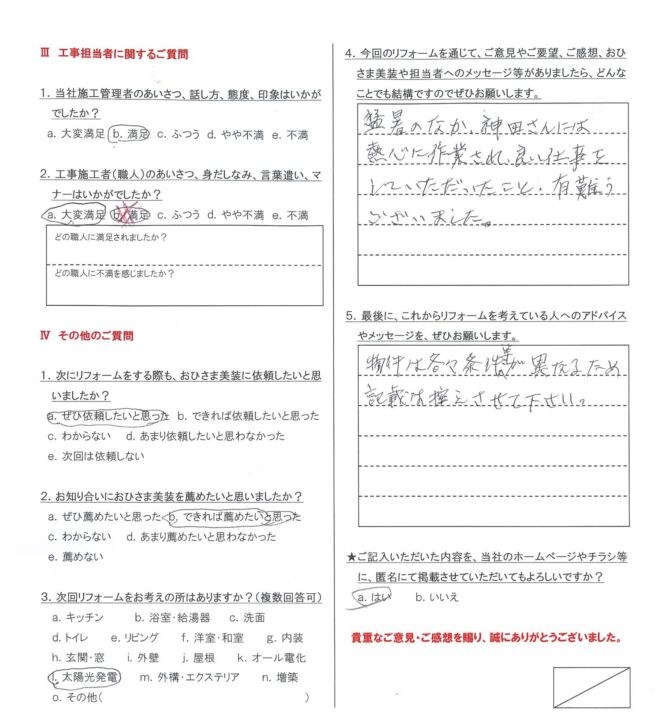 Ⅲ 工事担当者に関するご質問
1. 当社施工管理者のあいさつ、話し方、態度、印象はいかが
でしたか？
a. 大変満足 b. 満足 c. ふつう d. やや不満 e. 不満
2. 工事施工者（職人）のあいさつ、身だしなみ、言葉遣い、マ
ナーはいかがでしたか？
a. 大変満足 b. 満足 c. ふつう d. やや不満 e. 不満
どの職人に満足されましたか？
どの職人に不満を感じましたか？
Ⅳ その他のご質問
1. 次にリフォームをする際も、おひさま美装に依頼したいと思
いましたか？
a. ぜひ依頼したいと思った b. できれば依頼したいと思った
c. わからない d. あまり依頼したいと思わなかった
e. 次回は依頼しない
2. お知り合いにおひさま美装を薦めたいと思いましたか？
a. ぜひ薦めたいと思った b. できれば薦めたいと思った
c. わからない d. あまり薦めたいと思わなかった
e. 薦めない
3. 次回リフォームをお考えの所はありますか？（複数回答可）
a. キッチン b. 浴室・給湯器 c. 洗面
d.トイレ e. リビング f. 洋室・和室 g. 内装
h. 玄関・窓 i. 外壁 j. 屋根 k. オール電化
l. 太陽光発電 m. 外構・エクステリア n. 増築
o. その他（ ）
4. 今回のリフォームを通じて、ご意見やご要望、ご感想、おひ
さま美装や担当者へのメッセージ等がありましたら、どんな
ことでも結構ですのでぜひお願いします。
猛暑のなか、神田さんには
熱心に作業され、良い仕事を
していただいたこと、有難う
ございました。
5. 最後に、これからリフォームを考えている人へのアドバイス
やメッセージを、ぜひお願いします。
物件は各々条件等が異なるため
記載は控えさせて下さい。
★ご記入いただいた内容を、当社のホームページやチラシ等
に、匿名にて掲載させていただいてもよろしいですか？
a. はい b. いいえ
貴重なご意見・ご感想を賜り、誠にありがとうございました。